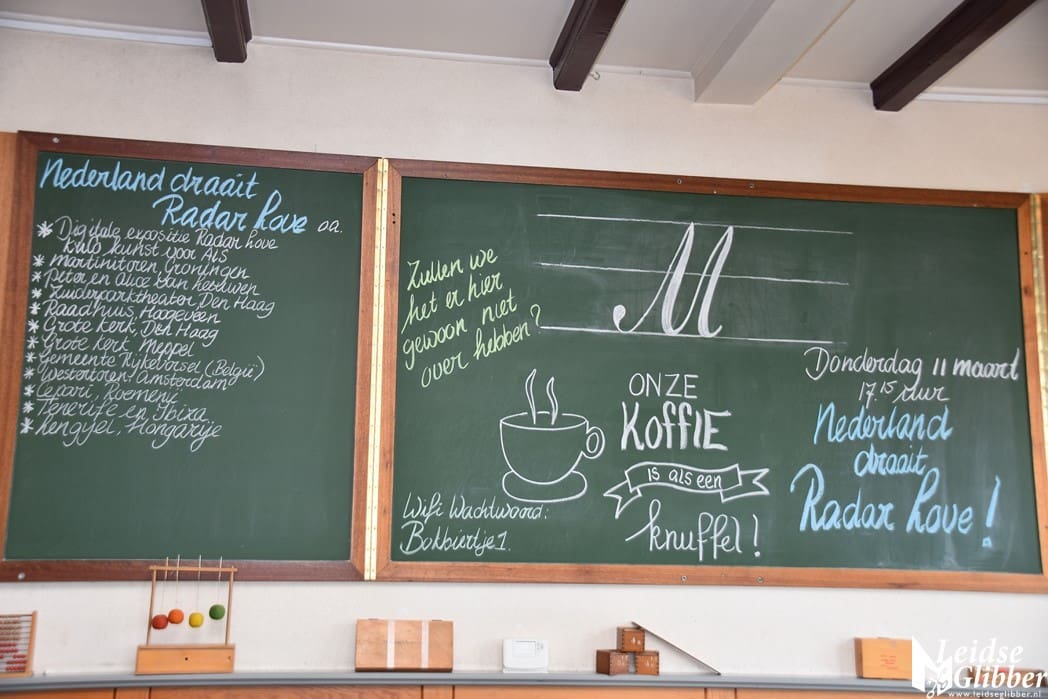 Nederland draait
Radar Love oa.
* Digitale expositie Radar Love
kunst voor ALS
* Martinitoren Groningen
* Peter en Alice van
* Zuiderparktheater, Den Haag
* Raadhuis, Hoogeveen
* Grote kerk, Den Haag
* Grote kerk, Meppel
* Gemeente Rijkevorsel (België)
* Westertoren Amsterdam
* Roemenië
* Tenerife en Ibiza
* Lengyel, Hongarije
Zullen we
het er hier
gewoon niet
over hebben?
M
ONZE
KOFFIE
is als een
knuffel!
Wifi Wachtwoord:
Bokbiertje1.
Donderdag 11 maart
17.15 uur
Nederland
draait
Radar Love!
Leidse
Glibber
www.leidseglibber.nl